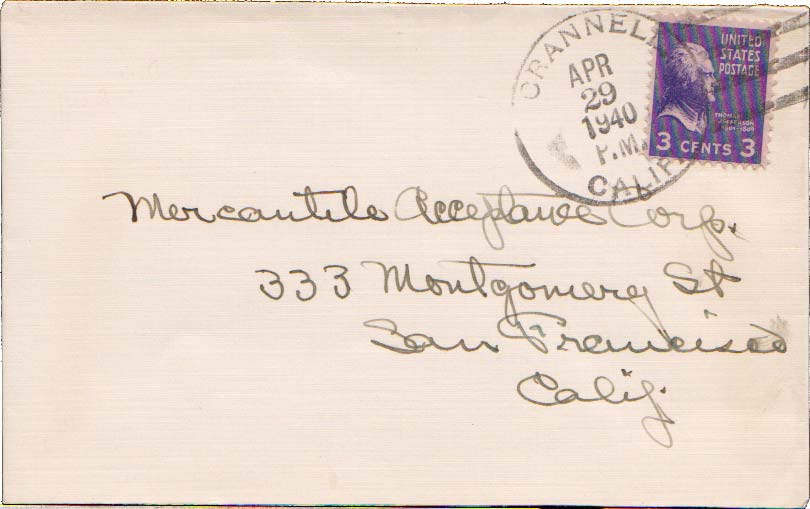 CRANNELL
APR
29
1940
P.M.
CALIF
UNITED
STATES
POSTAGE
THOMAS
JEFFERSON
1801-1809
3 CENTS 3
Mercantile Acceptance Corp.
333 Montgomery St
San Francisco
Calif.